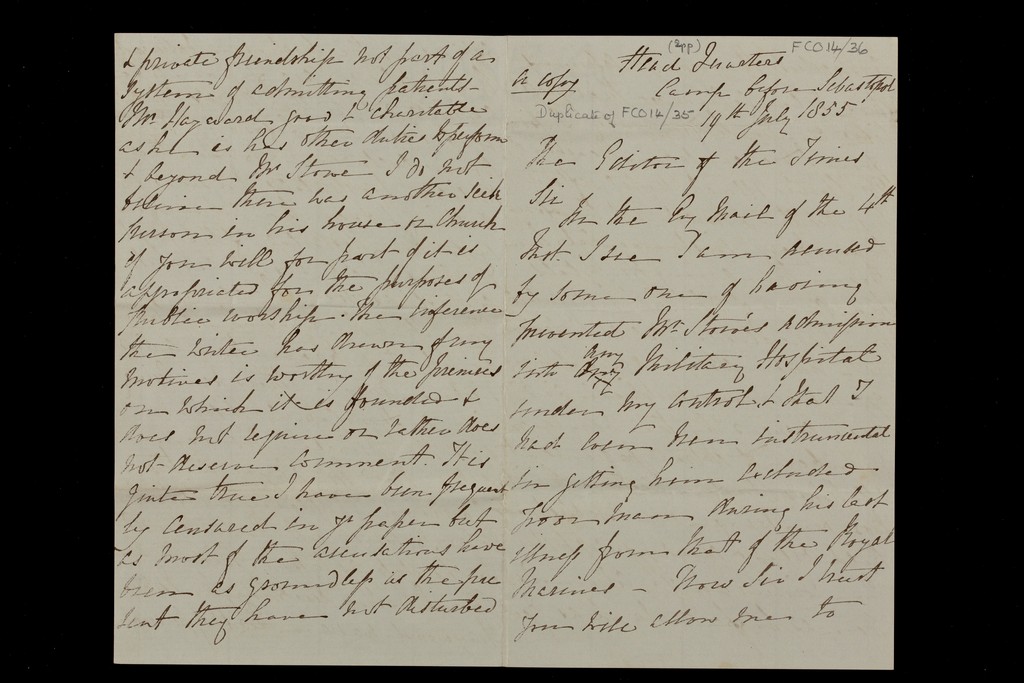 & private friendship not part of a
system of admitting patients -
Mr. Hayward good & charitable
as he is has other duties to perform
& beyond Mr Stowe I do not
believe there was another sick
person in his house or Church
if you will for part of it is
appropriated for the purposes of
public worship. The inference
the writer has drawn of my
motives is worthy of the premises
on which it is founded &
does not require or rather does
not deserve comment. It is
quite true I have been frequent
ly censured in yr paper but
as most of the accusations have
been as groundless as the pre
sent they have not disturbed
(2pp)
FCO14/36
Head Quarters
a copy
Camp before Sebastopol
Duplicate of FCO14/35
19th July 1855
The Editor of the Times
Sir
In the by Mail of the 4th
Inst I see I am accused
by some one of having
prevented Mr. Stowe's admission
any
into Military Hospital
under my control & that I
had even been instrumental
in getting him excluded
from during his last
illness from that of the Royal
Marines - Now Sir I trust
you will allow me to